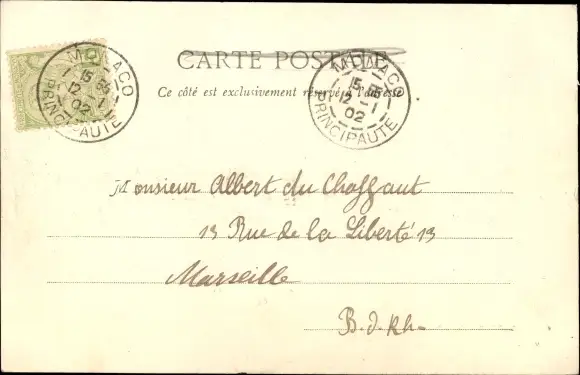 CARTE POSTALE
Ce côté est exclusivement réservé à l'adresse
MONACO
15 35
12 - 1
02
PRINCIPAUTE
MONACO
15 35
12 - 1
02
PRINCIPAUTE
Monsieur Albert du Chaffaut
13 Rue de la Liberté 13
Marseille
B.-d.-Rh-